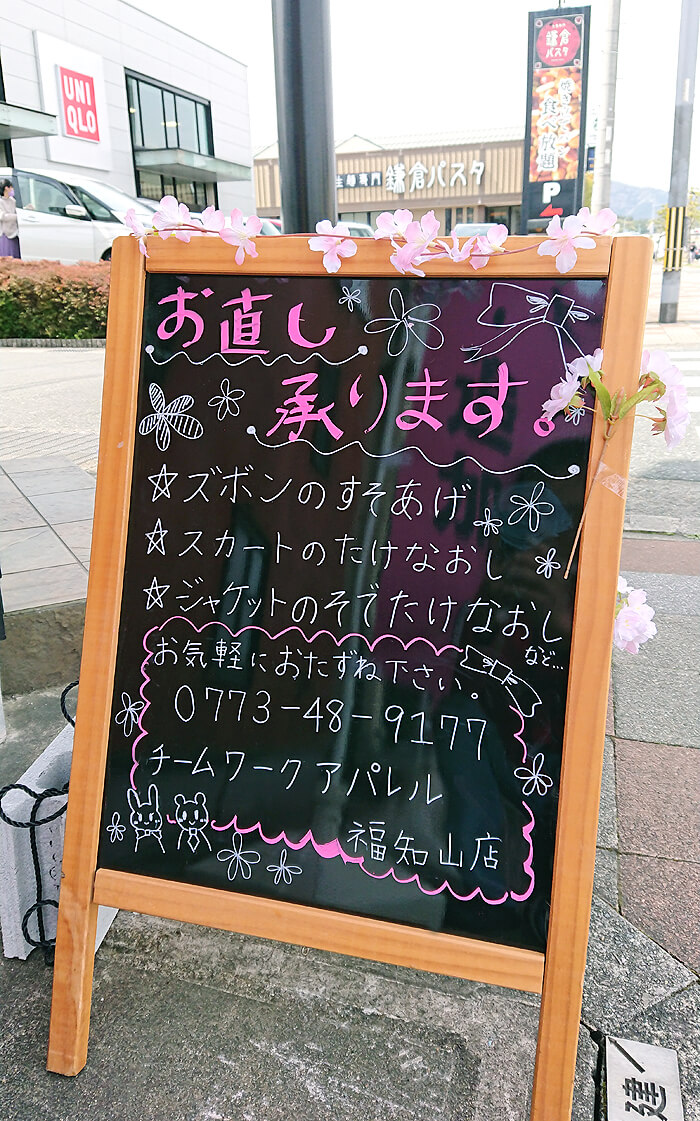 UNI
QLO
生麺専門 鎌倉パスタ
鎌倉
パスタ
食べ放題
P
お直し
承ります。
☆ズボンのすそあげ
☆スカートのたけなおし
☆ジャケットのそでたけなおし
など…
お気軽におたずね下さい。
0773-48-9177
チームワークアパレル
福知山店
建